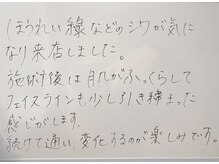 ほうれい線などのシワが気に
なり来店しました。
施術後は肌がふっくらして
フェイスラインも少し引き締まった
感じがします。
続けて通い、変化するのが楽しみです。